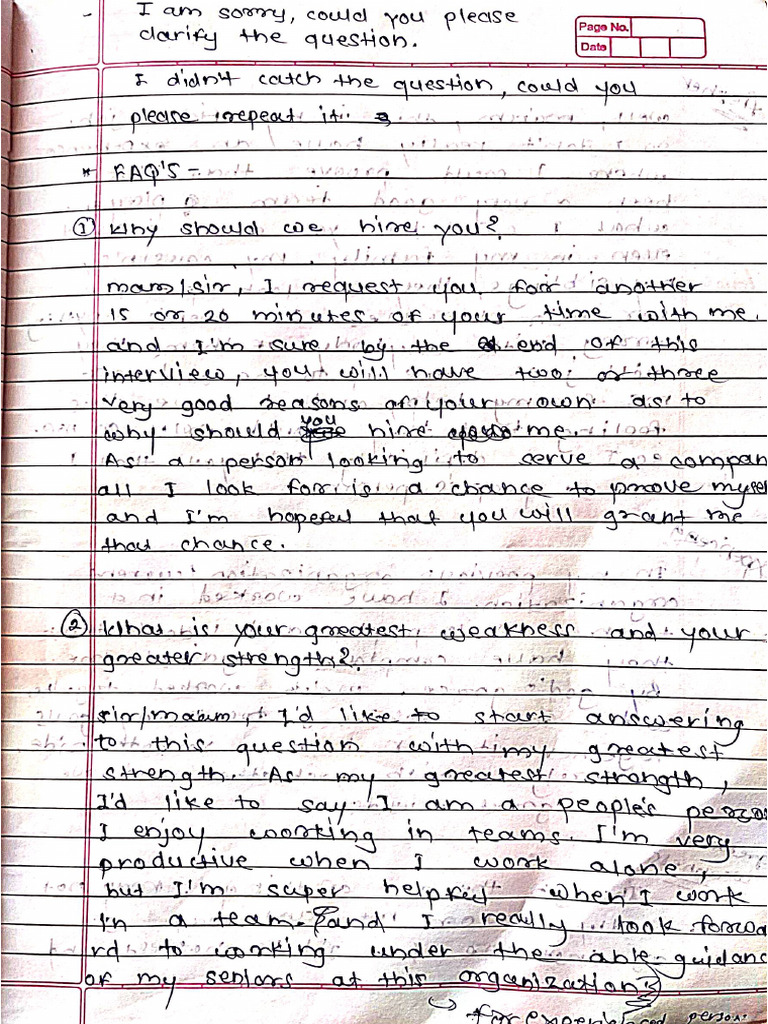 - I am sorry, could you please
clarify the question.
Page No.
Date
I didn't catch the question, could you
please repeat it.
* FAQ'S -
① Why should we hire you?
mam/sir, I request you for another
15 or 20 minutes of your time with me.
and I'm sure by the end of this
interview, you will have two or three
very good reasons of your own as to
why should you hire me.
As a person looking to serve a compan
all I look for is a chance to prove mysel
and I'm hopeful that you will grant me
that chance.
② What is your greatest weakness and your
greater strength?
sir/maam, I'd like to start answering
to this question with my greatest
strength. As my greatest strength,
I'd like to say I am a people's perso
I enjoy working in teams. I'm very
productive when I work alone,
but I'm super helpful when I work
in a team. (and I really look forwa
rd to working under the able guidanc
of my seniors at this organization)
→ for experienced person